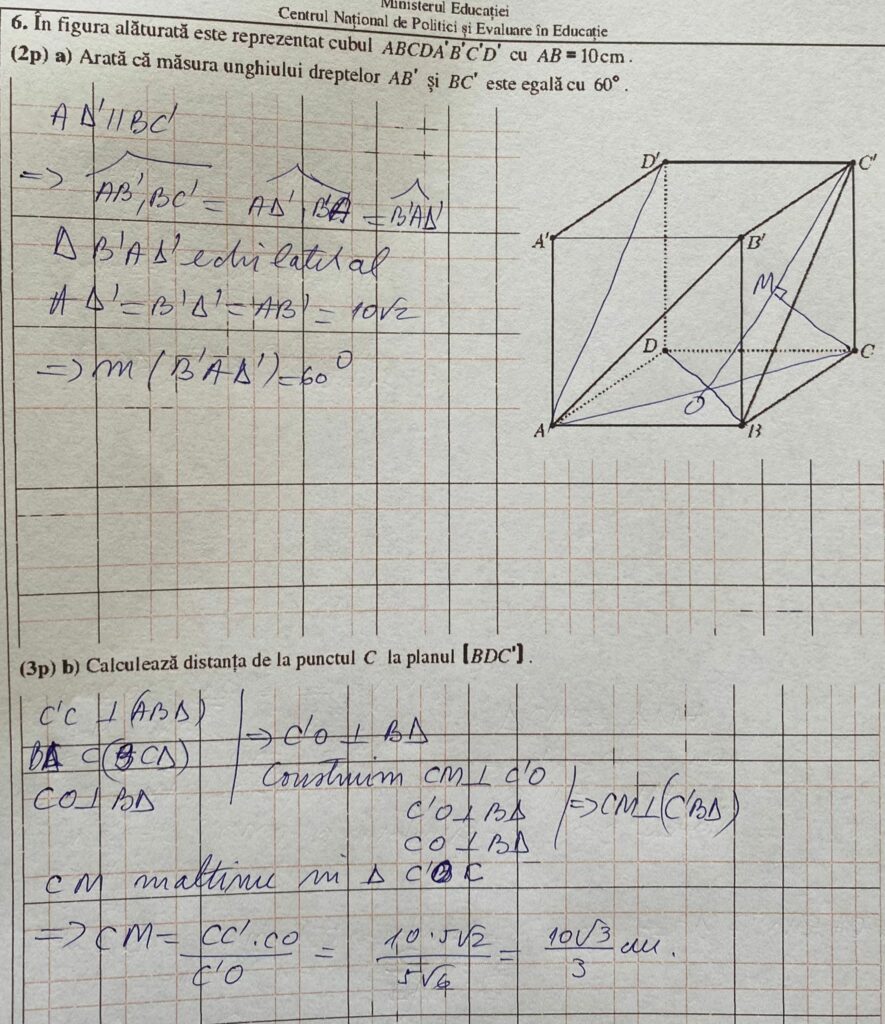 Ministerul Educației
Centrul Național de Politici și Evaluare în Educație
6. În figura alăturată este reprezentat cubul ABCDA'B'C'D' cu AB = 10cm.
(2p) a) Arată că măsura unghiului dreptelor AB' și BC' este egală cu 60°.
AD' // BC'
=> AB', BC' = AD', B'A = B'AD'
Δ B'AD' echilateral
AD' = B'D' = AB' = 10√2
=> m (B'AD') = 60°
D' C'
A' B'
M
D C
O
A B
(3p) b) Calculează distanța de la punctul C la planul (BDC').
C'C ⊥ (ABD)
BD ⊂ (BCD) => C'O ⊥ BD
CO ⊥ BD
Construim CM ⊥ C'O
C'O ⊥ BD => CM ⊥ (C'BD)
CO ⊥ BD
CM înălțime în Δ C'OC
=> CM = CC'·CO / C'O = 10·5√2 / 5√6 = 10√3 / 3 cm.